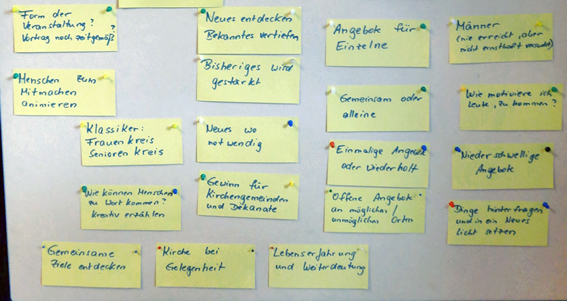 Form der
Veranstaltung?
Vortrag noch zeitgemäß?
Menschen zum
Mitmachen
animieren
Klassiker:
Frauenkreis
Seniorenkreis
Wie können Menschen
zu Wort kommen?
Kreativ erzählen
Gemeinsame
Ziele entdecken
Neues entdecken
Bekanntes vertiefen
Bisheriges wird
gestärkt
Neues wo
notwendig
Gewinn für
Kirchengemeinden
und Dekanate
Kirche bei
Gelegenheit
Angebote für
Einzelne
Gemeinsam oder
alleine
Einmalige Angebote
oder wiederholt
Offene Angebote
an möglichen/
unmöglichen Orten
Lebenserfahrung
und Weiterdeutung
Männer
(nie erreicht, aber
nicht ernsthaft versucht)
Wie motiviere ich
Leute, zu kommen?
Niederschwellige
Angebote
Dinge hinterfragen
und in ein Neues
Licht setzen